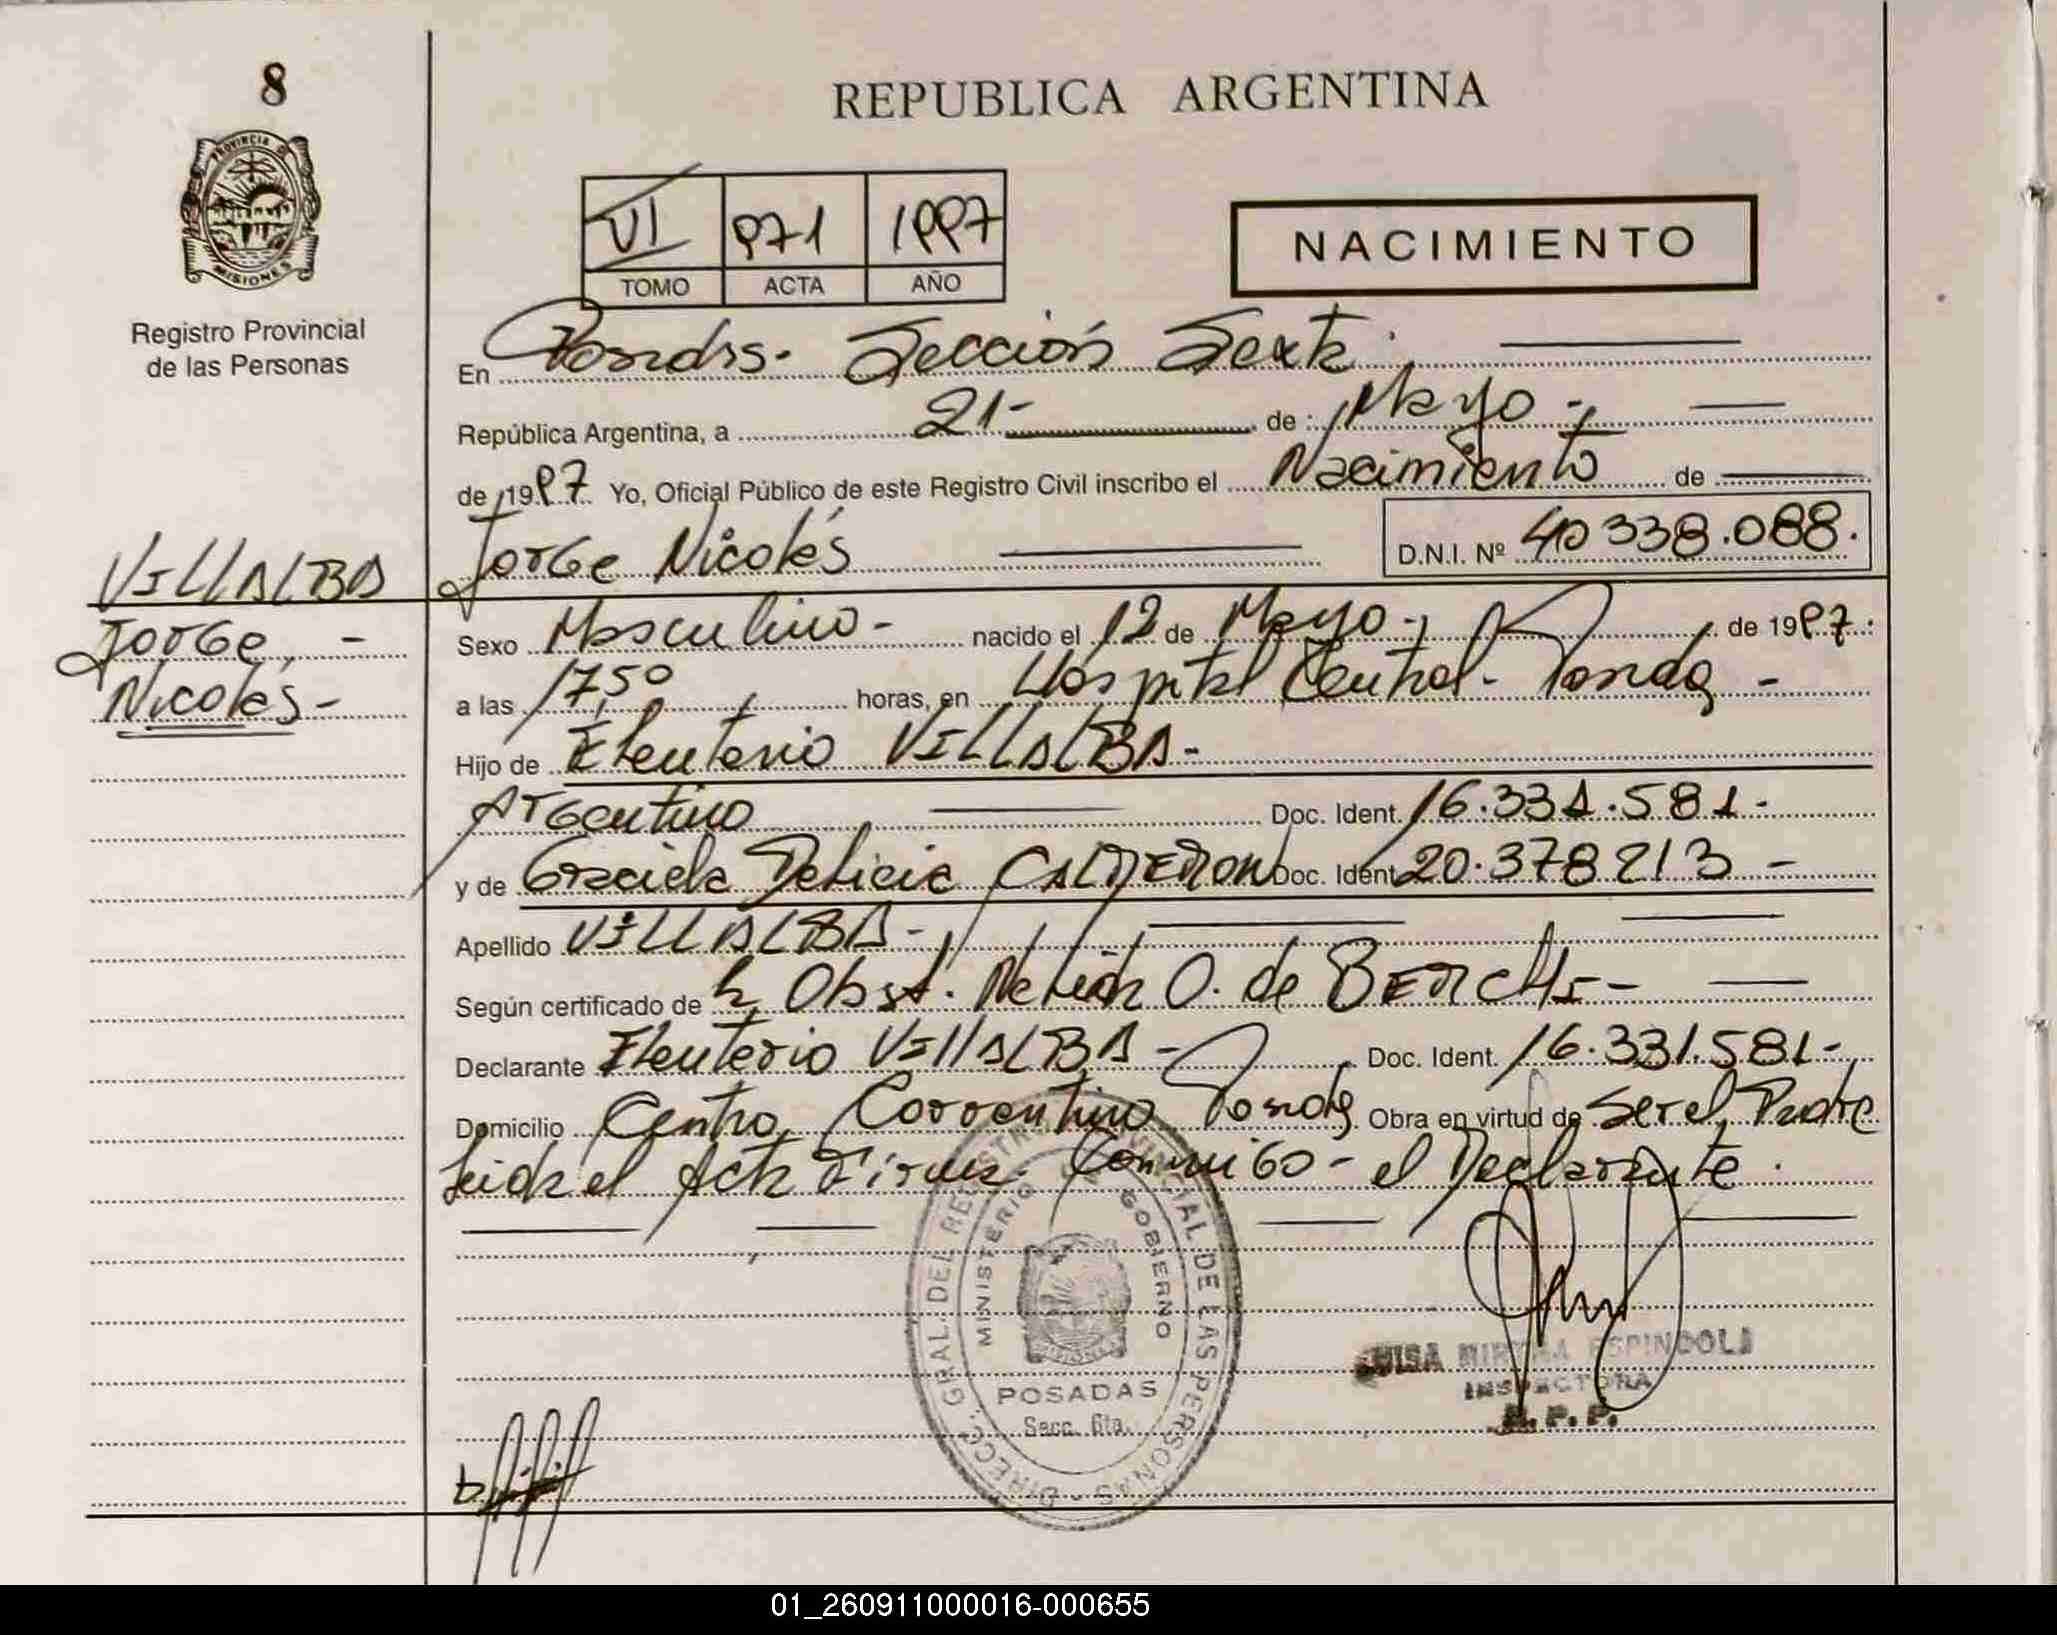 8
REPUBLICA ARGENTINA
PROVINCIA DE
MISIONES
Registro Provincial
de las Personas
VI 971 1997
TOMO ACTA AÑO
NACIMIENTO
En Posadas- Sección Sexta.
República Argentina, a 21- de Mayo -
de 1997 Yo, Oficial Público de este Registro Civil inscribo el Nacimiento de
Jorge Nicolás D.N.I. Nº 40 338.088.
VILLALBA
Jorge, -
Nicolás-
Sexo Masculino- nacido el 12 de Mayo- de 1997.
a las 17,50 horas, en Hospital Central- Posadas -
Hijo de Eleuterio VILLALBA-
Argentino Doc. Ident. 16.331.581-
y de Graciela CALDERON Doc. Ident 20.378 213 -
Apellido VILLALBA-
Según certificado de la Obst. Nelida O. de
Declarante Eleuterio VILLALBA- Doc. Ident. 16.331.581-
Domicilio Centro Correntino Posadas Obra en virtud de Ser el Padre
leida el Acta Firma Conmigo- el Declarante.
DIRECC. GRAL. DEL REGISTRO PROVINCIAL DE LAS PERSONAS -
MINISTERIO DE GOBIERNO
MISIONES
POSADAS
Secc. 6ta.
LUISA MIRTHA ESPINDOLA
INSPECTORA
R. P. P.
01_260911000016-000655